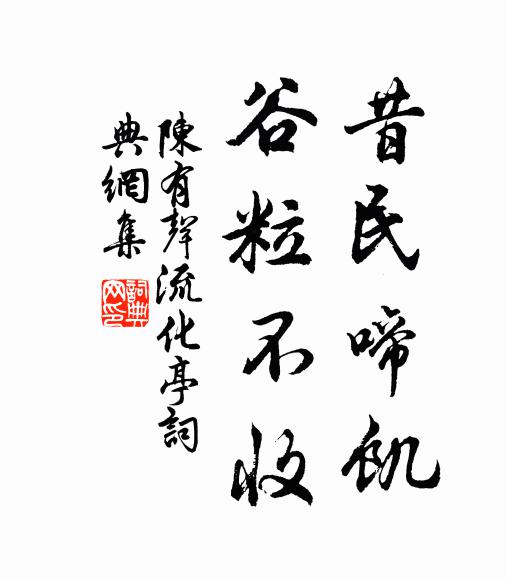 昔民啼飢
谷粒不收
陳有聲流化亭詞
典網集
詞典网印